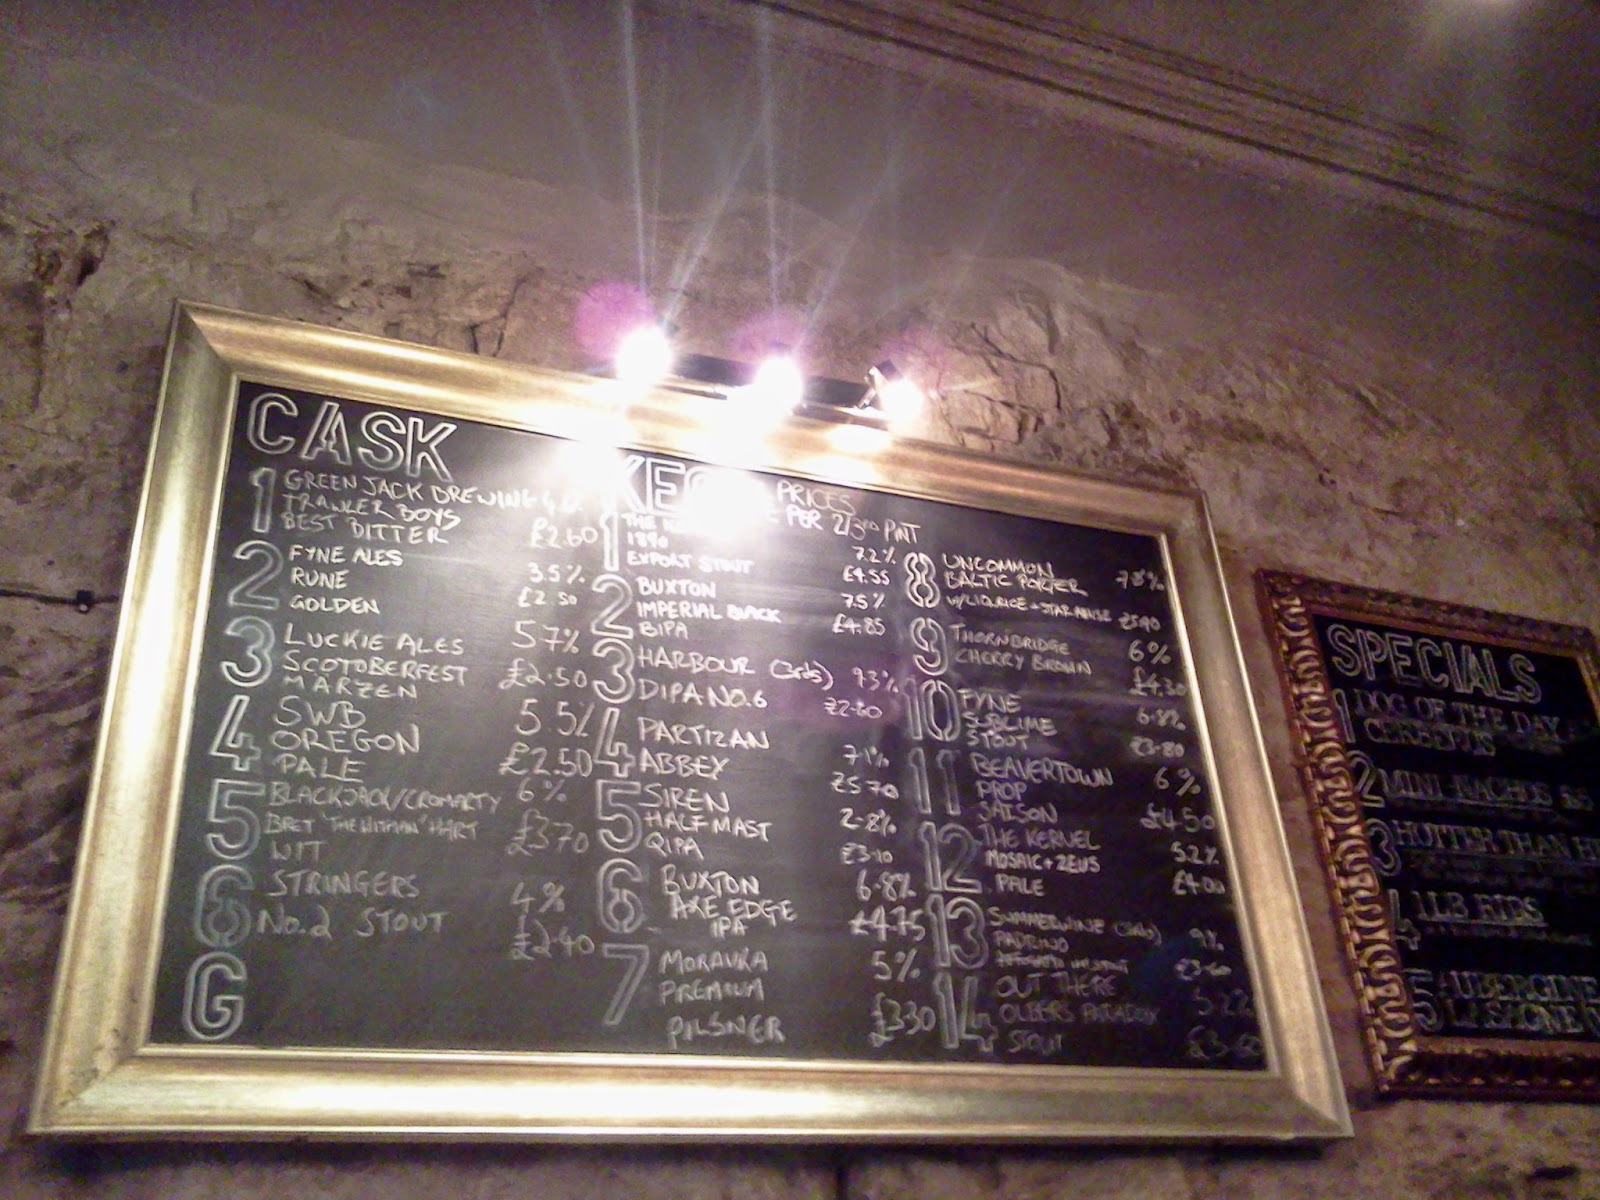 CASK
1 GREEN JACK BREWING
TRAWLER BOYS
BEST BITTER £2.60
2 FYNE ALES 3.5%
RUNE £2.50
GOLDEN
3 LUCKIE ALES 5.7%
SCOTOBERFEST £2.50
MÄRZEN
4 SWB 5.5%
OREGON £2.50
PALE
5 BLACKJACK/CROMARTY 6%
BRET "THE HITMAN" HART £3.70
WIT
6 STRINGERS 4%
No.2 STOUT £2.40
G
KEG PRICES
PER 2/3rd PINT
1 THE
1890 7.2%
EXPORT STOUT £4.55
2 BUXTON 7.5%
IMPERIAL BLACK £4.85
BIPA
3 HARBOUR (3rds) 9.3%
DIPA NO.6 £2.80
4 PARTIZAN 7.1%
ABBEY £5.70
5 SIREN 2.8%
HALF MAST £3.10
QIPA
6 BUXTON 6.8%
AXE EDGE £4.75
IPA
7 MORAVKA 5%
PREMIUM £3.30
PILSNER
8 UNCOMMON 7.8%
BALTIC PORTER
W/LIQUORICE + STAR ANISE £5.90
9 THORNBRIDGE 6%
CHERRY BROWN £4.30
10 FYNE 6.8%
SUBLIME £3.80
STOUT
11 BEAVERTOWN 6%
PROP £4.50
SAISON
12 THE KERNEL 5.2%
MOSAIC + ZEUS £4.00
PALE
13 SUMMERWINE (3rds) 9%
PADRINO
14 OUT THERE
OLBERS PARADOX
STOUT
SPECIALS
1 DOG OF THE DAY
CERBERUS
2 MINI NACHOS
3 HUTTER THAN
4 1LB RIBS
5 AUBERGINE
LASAGNE